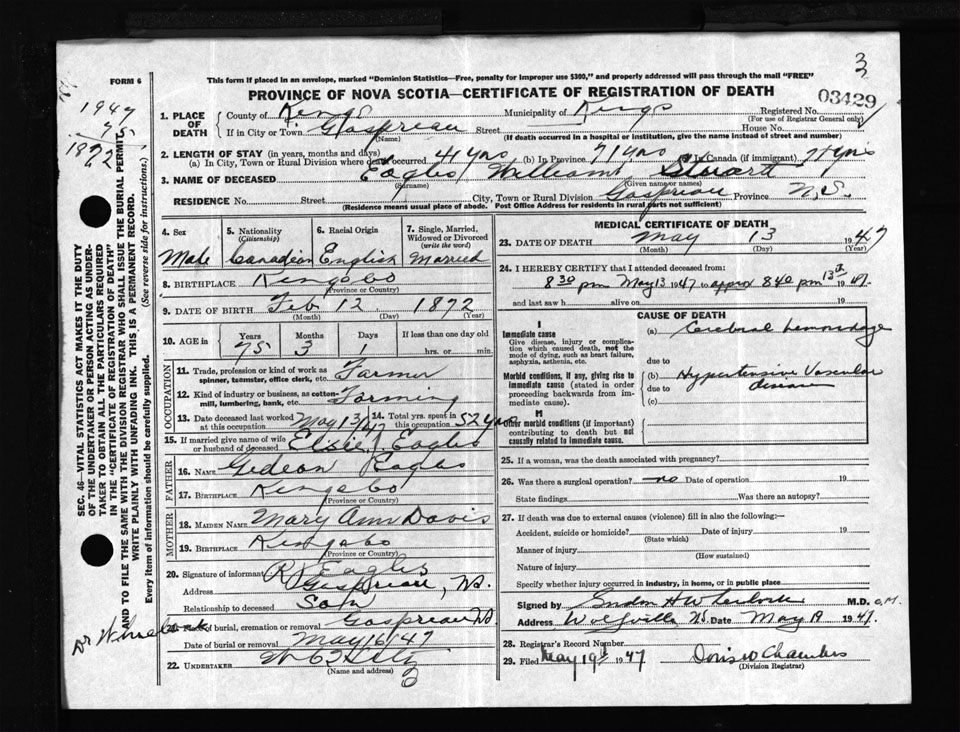 3
FORM 6
This form if placed in an envelope, marked "Dominion Statistics—Free, penalty for improper use $300," and properly addressed will pass through the mail "FREE"
PROVINCE OF NOVA SCOTIA—CERTIFICATE OF REGISTRATION OF DEATH
03429
1947
75
1872
1. PLACE OF DEATH
County of Kings Municipality of Kings Registered No.
(For use of Registrar General only)
If in City or Town Gaspreau Street House No.
(Name) (If death occurred in a hospital or institution, give the name instead of street and number)
2. LENGTH OF STAY (in years, months and days)
(a) In City, Town or Rural Division where death occurred 41 yrs (b) In Province 71 yrs (c) In Canada (if immigrant) 71 yrs
3. NAME OF DECEASED Eagles William Stuart
(Surname) (Given name or names)
RESIDENCE No. Street City, Town or Rural Division Gaspreau Province N.S.
(Residence means usual place of abode. Post Office Address for residents in rural parts not sufficient)
4. Sex
Male
5. Nationality
(Citizenship)
Canadian
6. Racial Origin
English
7. Single, Married, Widowed or Divorced
(write the word)
Married
8. BIRTHPLACE Kings Co
(Province or Country)
9. DATE OF BIRTH Feb 12 1872
(Month) (Day) (Year)
10. AGE in
Years Months Days If less than one day old
75 3 1 hrs. or min.
OCCUPATION
11. Trade, profession or kind of work as spinner, teamster, office clerk, etc. Farmer
12. Kind of industry or business, as cotton-mill, lumbering, bank, etc. Farming
13. Date deceased last worked at this occupation May 13/47
14. Total yrs. spent in this occupation 52 yrs
15. If married give name of wife or husband of deceased Elsie Eagles
FATHER
16. NAME Gedeon Eagles
17. BIRTHPLACE Kings Co
(Province or Country)
MOTHER
18. MAIDEN NAME Mary Ann Davis
19. BIRTHPLACE Kings Co
(Province or Country)
20. Signature of informant R J Eagles
Address Gaspreau, N.S.
Relationship to deceased Son
21. Place of burial, cremation or removal Gaspreau N.S.
Date of burial or removal May 16/47
22. UNDERTAKER
(Name and address)
3
Dr Wheelock
MEDICAL CERTIFICATE OF DEATH
23. DATE OF DEATH May 13 1947
(Month) (Day) (Year)
24. I HEREBY CERTIFY that I attended deceased from:
8 30 pm May 13 1947 to approx 8 40 pm 13th 1947.
and last saw h alive on 19
CAUSE OF DEATH
I
Immediate cause
Give disease, injury or complication which caused death, not the mode of dying, such as heart failure, asphyxia, asthenia, etc.
(a) Cerebral hemorrhage
due to
Morbid conditions, if any, giving rise to immediate cause (stated in order proceeding backwards from immediate cause).
(b) Hypertensive Vascular disease
due to
(c)
II
Other morbid conditions (if important) contributing to death but not causally related to immediate cause.
25. If a woman, was the death associated with pregnancy?
26. Was there a surgical operation? no Date of operation 19
State findings Was there an autopsy?
27. If death was due to external causes (violence) fill in also the following:—
Accident, suicide or homicide? Date of injury 19
(State which)
Manner of injury
(How sustained)
Nature of injury
Specify whether injury occurred in industry, in home, or in public place
Signed by Gordon H Wheelock M.D. C.M.
Address Wolfville N.S. Date May 19 1947.
28. Registrar's Record Number
29. Filed May 19th 1947 Doris W Chambers
(Division Registrar)
SEC. 46—VITAL STATISTICS ACT MAKES IT THE DUTY
OF THE UNDERTAKER OR PERSON ACTING AS UNDER-
TAKER TO OBTAIN ALL THE PARTICULARS REQUIRED
IN THE "CERTIFICATE OF REGISTRATION OF DEATH"
AND TO FILE THE SAME WITH THE DIVISION REGISTRAR WHO SHALL ISSUE THE BURIAL PERMIT.
WRITE PLAINLY WITH UNFADING INK. THIS IS A PERMANENT RECORD.
Every item of information should be carefully supplied. (See reverse side for instructions.)